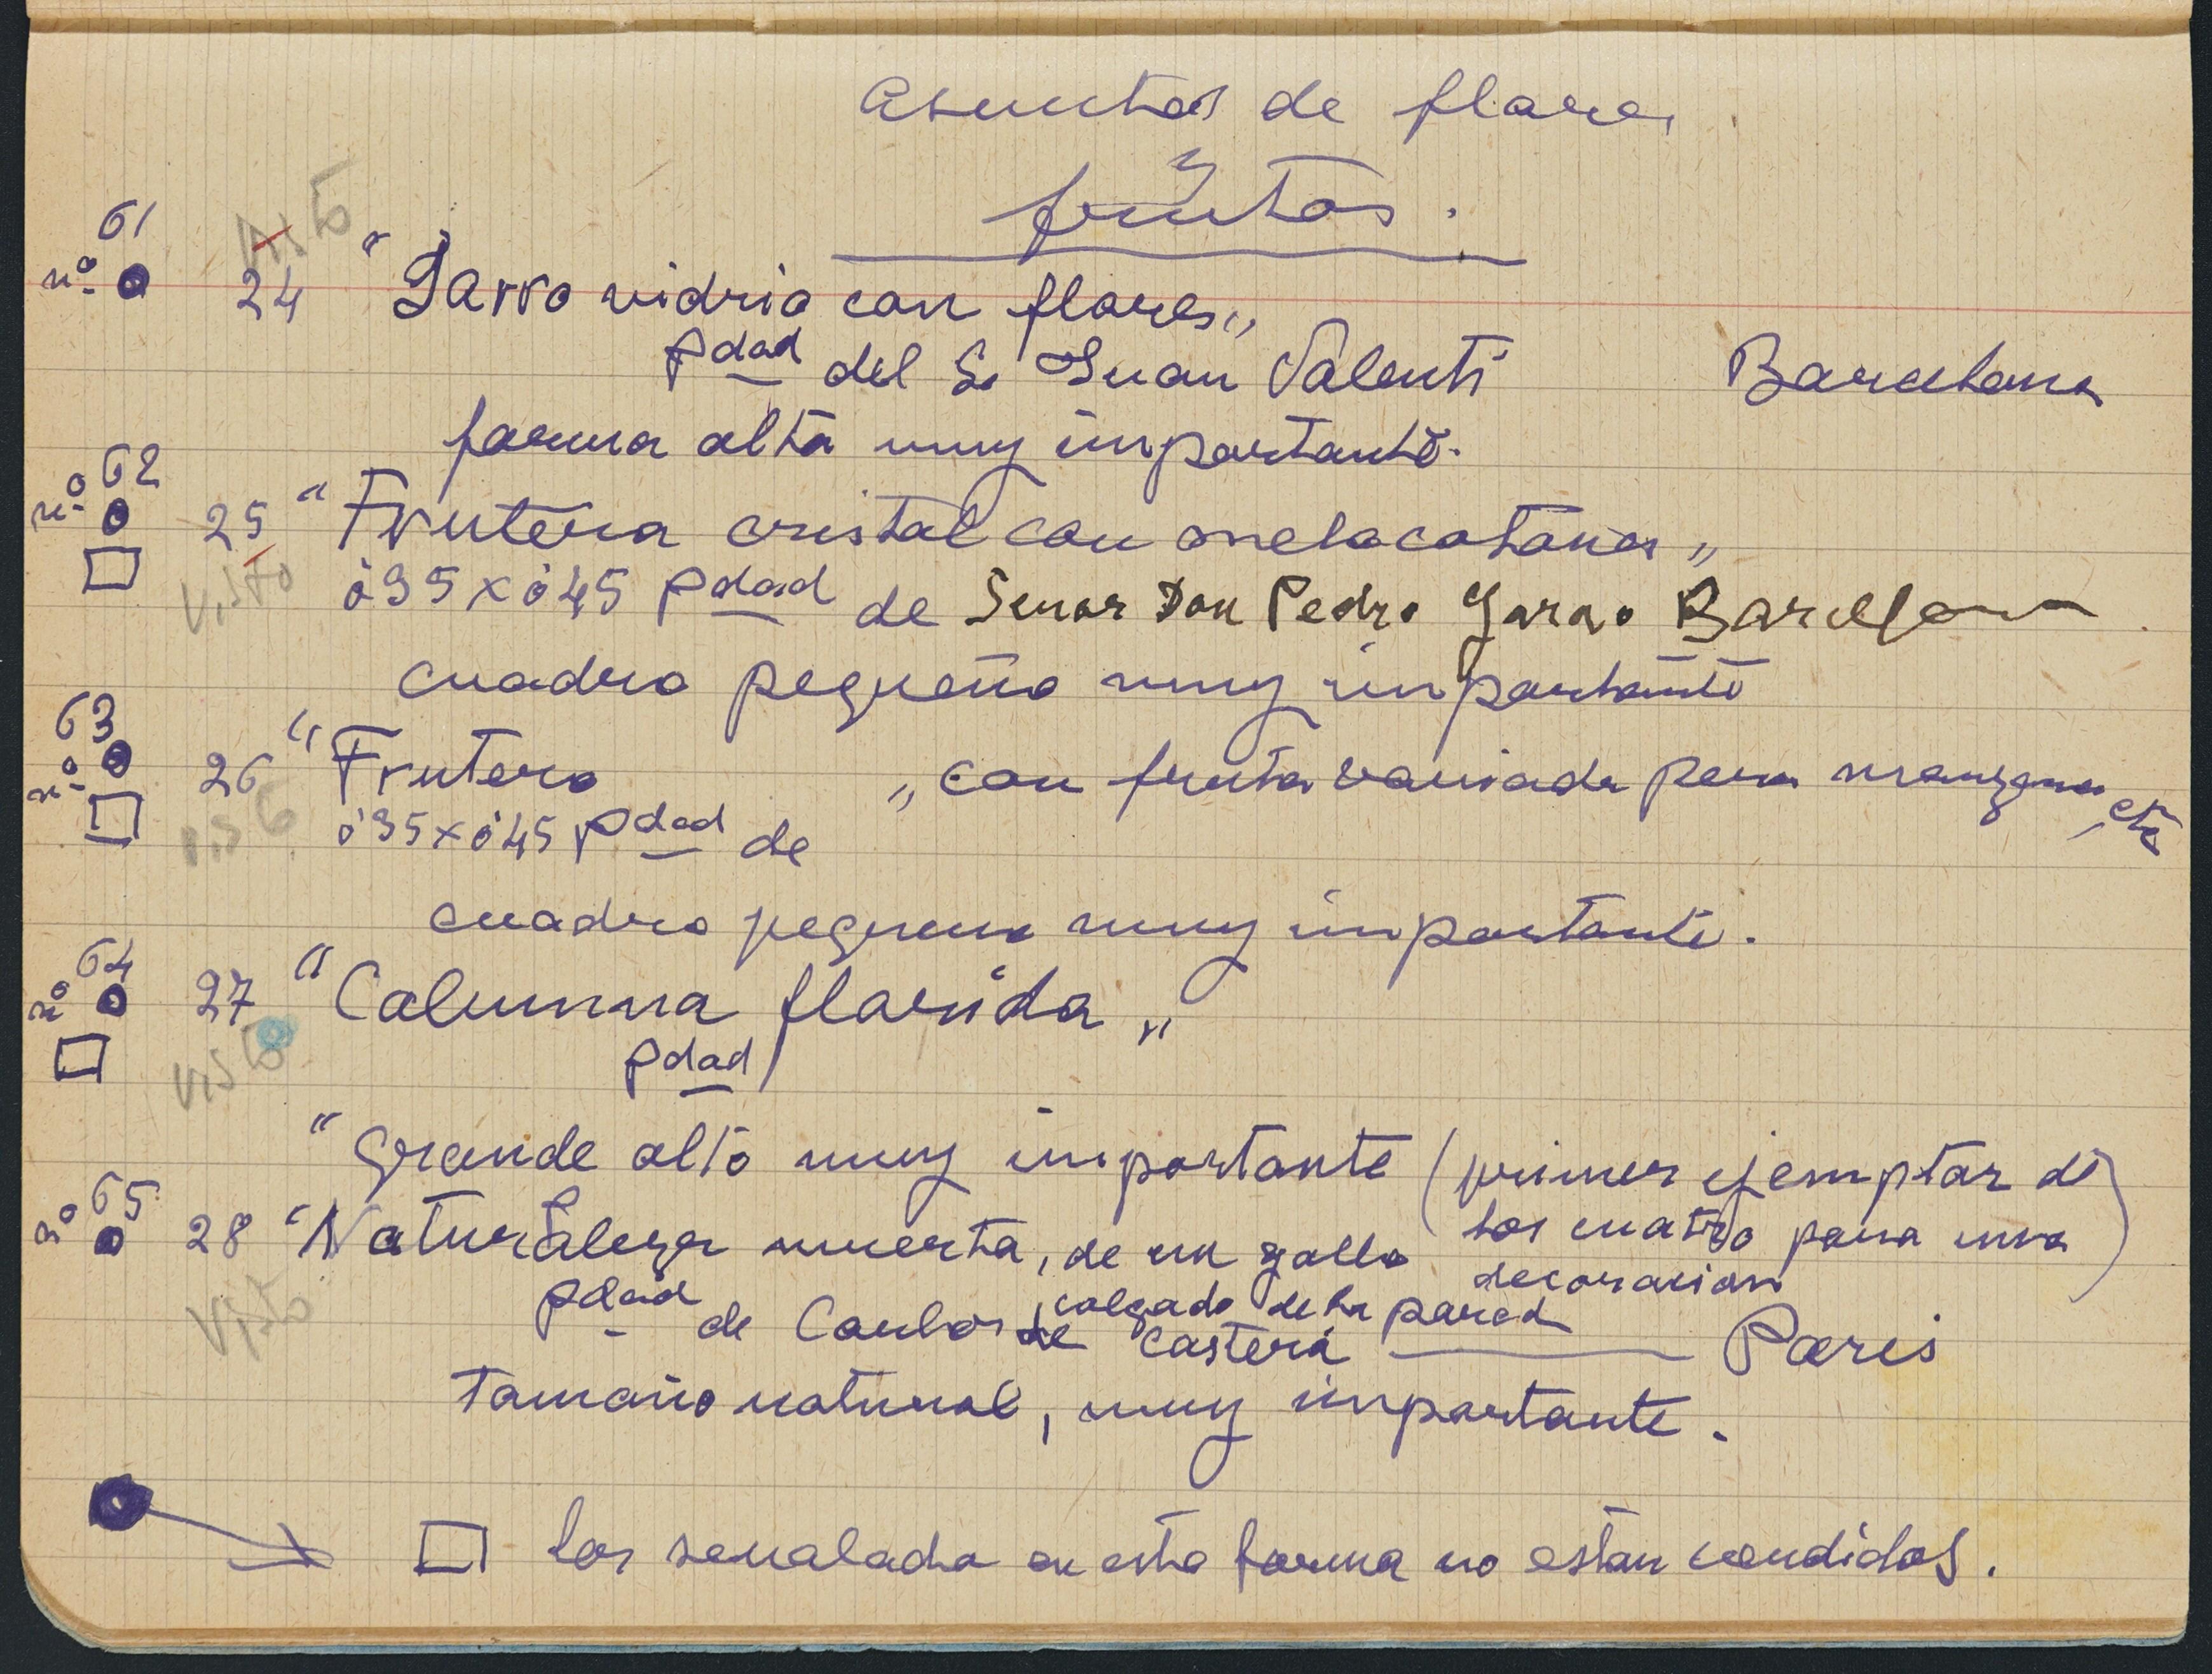 Asuntos de flores
y
frutas.
61
nº 24 "Jarro vidrio con flores"
Visto
pdad del Sr Juan Valenti Barcelona
forma alta muy importante.
62
nº 25 "Frutera cristal con melocotones"
Visto
0'35 x 0'45 pdad de Senor Don Pedro Barcelona
cuadro pequeño muy importante
63
nº 26 "Frutero " con fruta variada pera manzanas, etc
0'35 x 0'45 pdad de
cuadro pequeno muy importante.
64
nº 27 "Columna florida"
Visto
pdad
"grande alto muy importante (primer ejemplar de
los cuatro para una
decoracion)
65
nº 28 "Naturaleza muerta, de un gallo
colgado de la pared
Visto
pdad de Carlos de Casterá — Paris
Tamaño natural, muy importante.
los senalados en esta forma no estan vendidos.